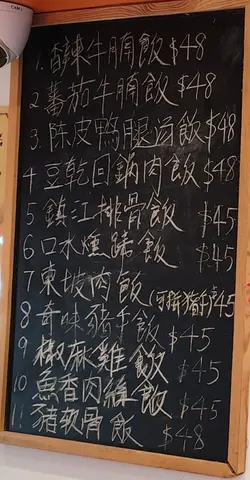 1. 酸辣牛腩飯 $48
2 蕃茄牛腩飯 $48
3. 陳皮鴨腿湯飯 $48
4 豆乾回鍋肉飯 $48
5 鎮江排骨飯 $45
6 口水燻蹄飯 $45
7 東坡肉飯 (可拼豬手) $45
8 奇味豬手飯 $45
9 椒麻雞飯 $45
10 魚香肉絲飯 $45
11 豬軟骨飯 $48